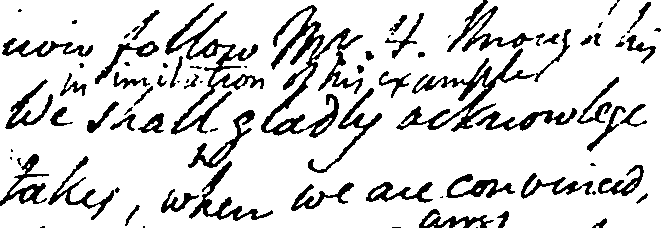 now follow Mr. H. through his
in imitation of his example
We shall gladly acknowlege
takes, when we are convinced,